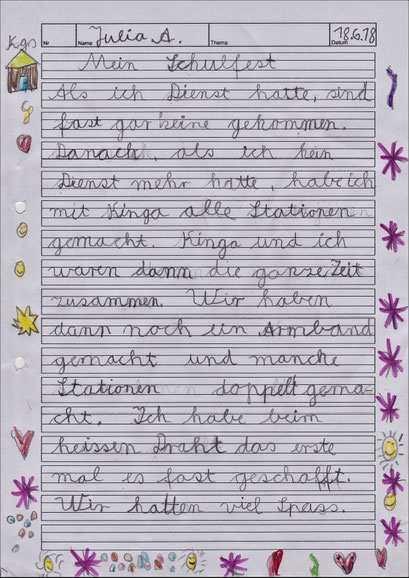 Kgs
Nr Name Julia A. Thema Datum 18.6.18
Mein Schulfest
Als ich Dienst hatte, sind
fast gar keine gekommen.
Danach, als ich kein
Dienst mehr hatte, habe ich
mit Kinga alle Stationen
gemacht. Kinga und ich
waren dann die ganze Zeit
zusammen. Wir haben
dann noch ein Armband
gemacht und manche
Stationen doppelt gema-
cht. Ich habe beim
heissen Draht das erste
mal es fast geschafft.
Wir hatten viel Spass.